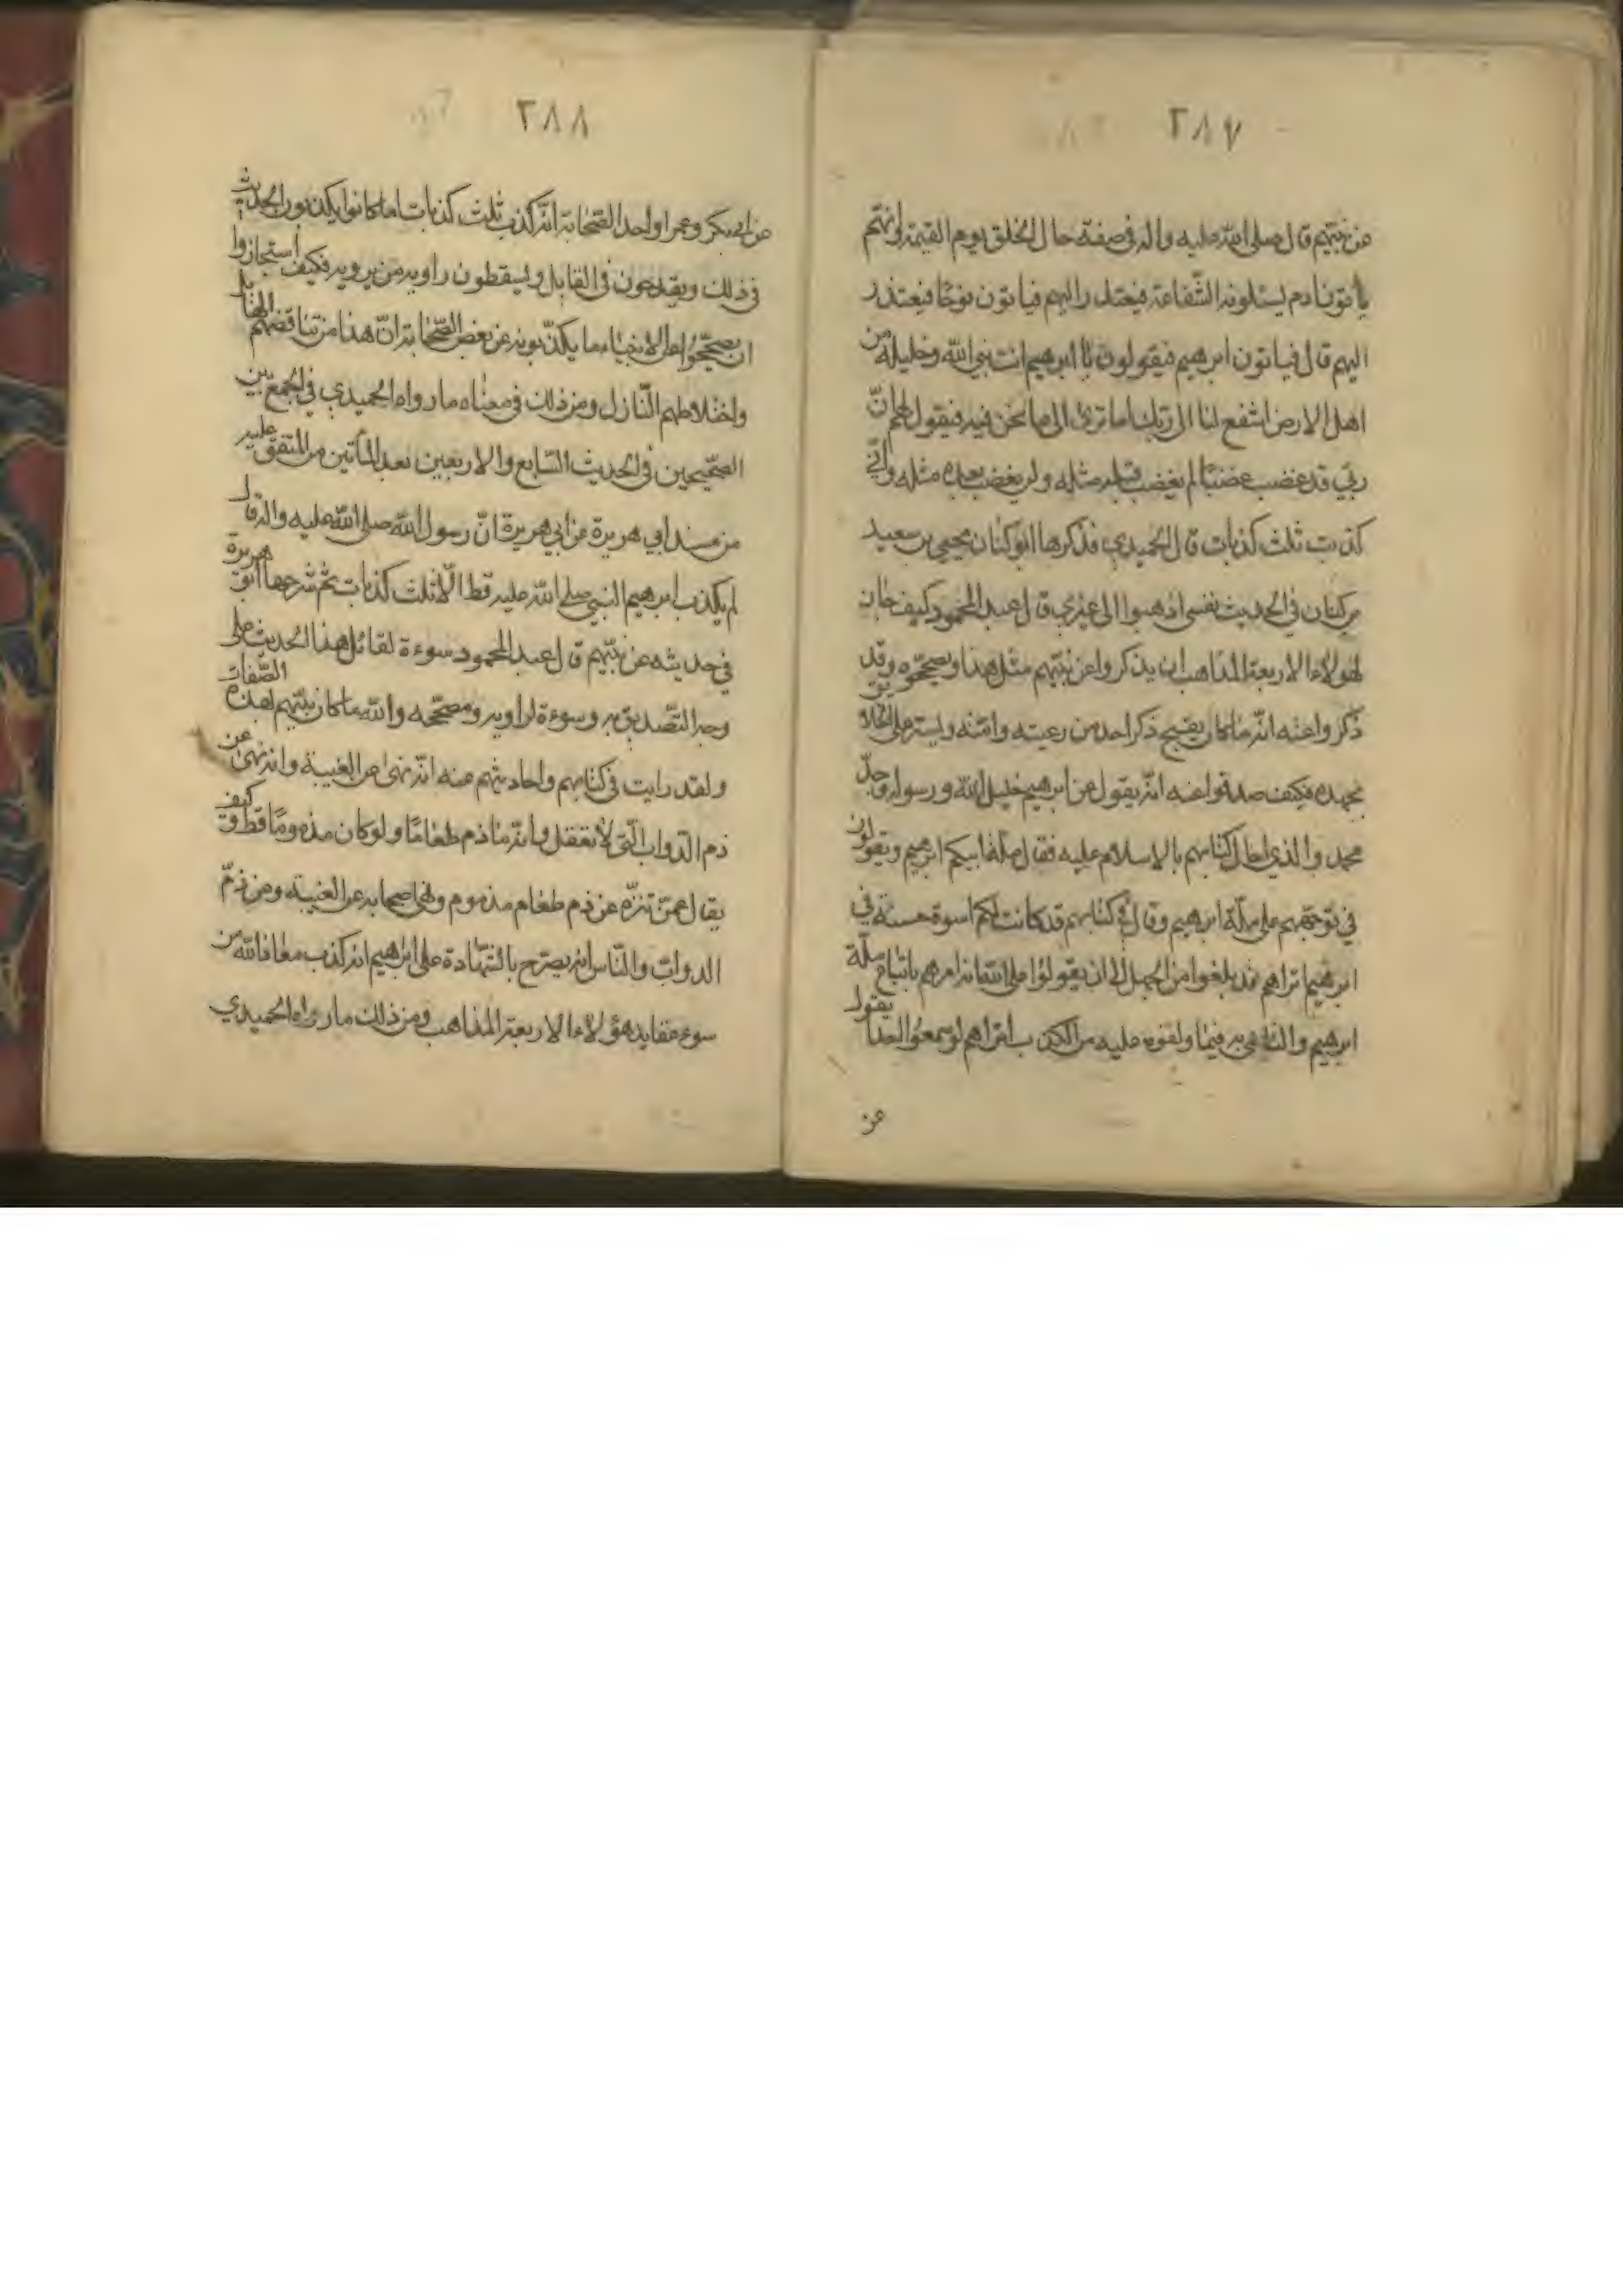 ٢٨٧
عن نبيهم قال صلى الله عليه واله في صفة حال الخلق يوم القيمة انهم
يأتون ادم يسئلونه الشفاعة فيعتذر اليهم فيأتون نوحا فيعتذر
اليهم قال فيأتون ابرهيم فيقولون يا ابرهيم انت نبي الله وخليله من
اهل الارض اشفع لنا الى ربك اما ترى الى ما نحن فيه فيقول لهم انّ
ربي قد غضب غضبًا لم يغضب قبله مثله ولن يغضب بعده مثله واني
كذبت ثلث كذبات قال الحميدي فذكرها ابو كنان يحيى بن سعيد
بن كنان في الحديث نفسي اذهبوا الى غيري قال عبد المحمود كيف جاز
لهؤلاء الاربعة المذاهب ان يذكروا عن نبيهم مثل هذا ويصححوه وقد
ذكروا عنه انه ما كان يقبح ذكر احد من رعيته وامته ويستر على الخلايق
بجهده فكيف صدقوا عنه انه يقول عن ابرهيم خليل الله ورسوله وجدّ
محمد والذي احال كتابهم بالاسلام عليه فقال ملة ابيكم ابرهيم ويقولون
في توجههم على ملة ابرهيم وقال في كتابهم قد كانت لكم اسوة حسنة في
ابرهيم اتراهم قد بلغوا من الجهل الى ان يقولوا ان الله امرهم باتباع ملة
ابرهيم والتاسي به فيما ولقوه عليه من الكذب اتراهم لو سمعوا احدا يقول
عن
٢٨٨
عن ابي بكر وعمر او احد الصحابة انه كذب ثلث كذبات اما كانوا يكذبون الحديث
في ذلك ويقدحون في القايل ويسقطون راويه من يرويه فكيف استجازوا
ان يصححوا على الانبياء ما يكذبونه عن بعض الصحابة انّ هذا من تناقضهم الهايل
واختلاطهم النازل ومن ذلك في معناه ما رواه الحميدي في الجمع بين
الصحيحين في الحديث السابع والاربعين بعد المأتين من المتفق عليه
من مسند ابي هريرة عن ابي هريرة انّ رسول الله صلى الله عليه واله قال
لم يكذب ابرهيم النبي صلى الله عليه قط الّا ثلث كذبات ثم شرحها ابو هريرة
في حديثه عن نبيّهم قال عبد المحمود سوءة لقائل هذا الحديث على
وجه التّصديق به وسوءة لراويه ومصححه والله ما كان نبيهم بهذه الصّفات
ولقد رايت في كتابهم واحاديثهم عنه انه نهى عن الغيبة وانه نهى عن
ذم الدّواب الّتي لا تعقل وانه ما ذم طعامًا ولو كان مذمومًا قط وكيف
يقال عمن تنزّه عن ذم طعام مذموم ونهى اصحابه عن الغيبة ومن ذمّ
الدوابّ والنّاس انه يصرّح بالشهادة على ابرهيم انه كذب معاذ الله من
سوء عقايد هؤلاء الاربعة المذاهب ومن ذلك ما رواه الحميدي